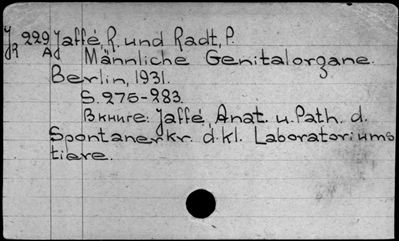 Jr 229 Jaffé, R. und Radt, P.
AJ Männliche Genitalorgane.
Berlin, 1931.
S. 275-283.
В книге: Jaffé, Anat. u. Path. d.
Spontanerkr. d. kl. Laboratoriums
tiere.